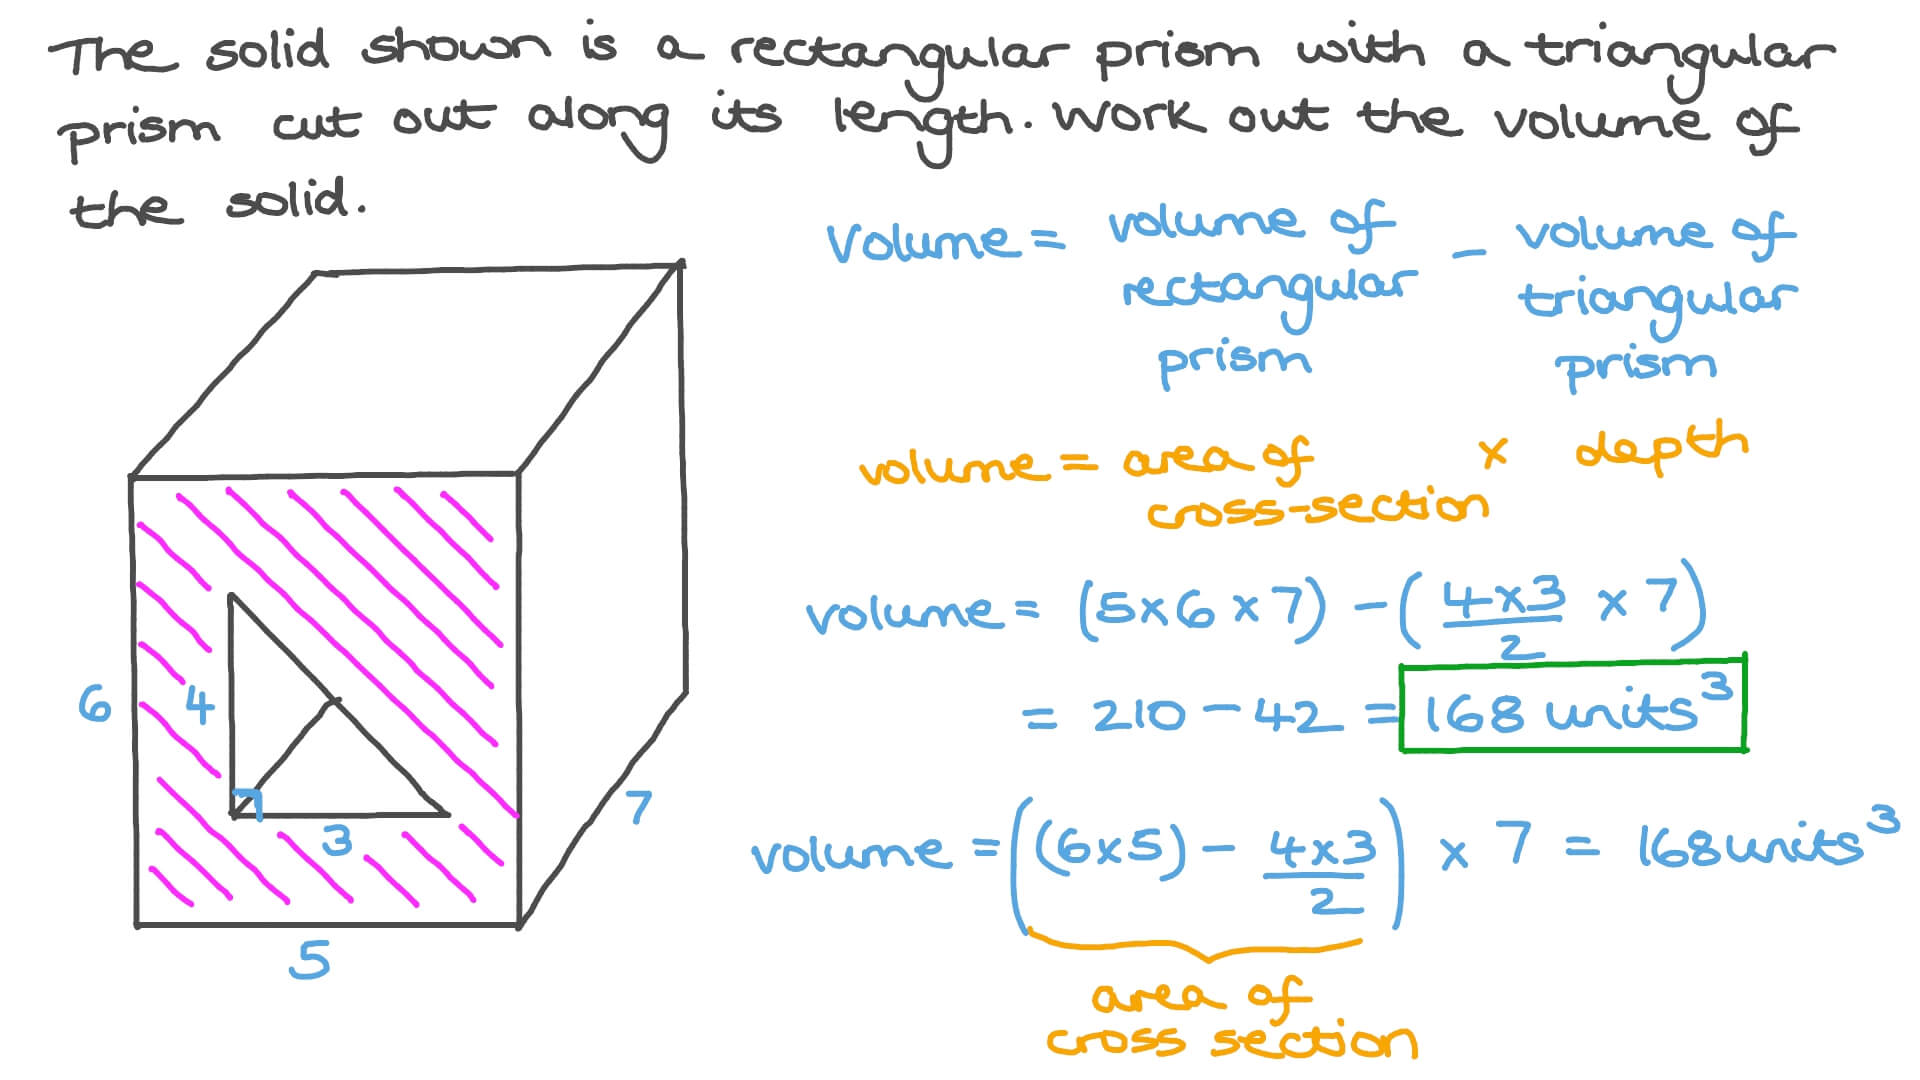 The solid shown is a rectangular prism with a triangular
prism cut out along its length. Work out the volume of
the solid.
Volume = volume of rectangular prism - volume of triangular prism
volume = area of cross-section x depth
volume = (5x6x7) - (4x3/2 x 7)
= 210 - 42 = 168 units³
volume = ((6x5) - 4x3/2) x 7 = 168 units³
area of
cross section
6
4
3
5
7